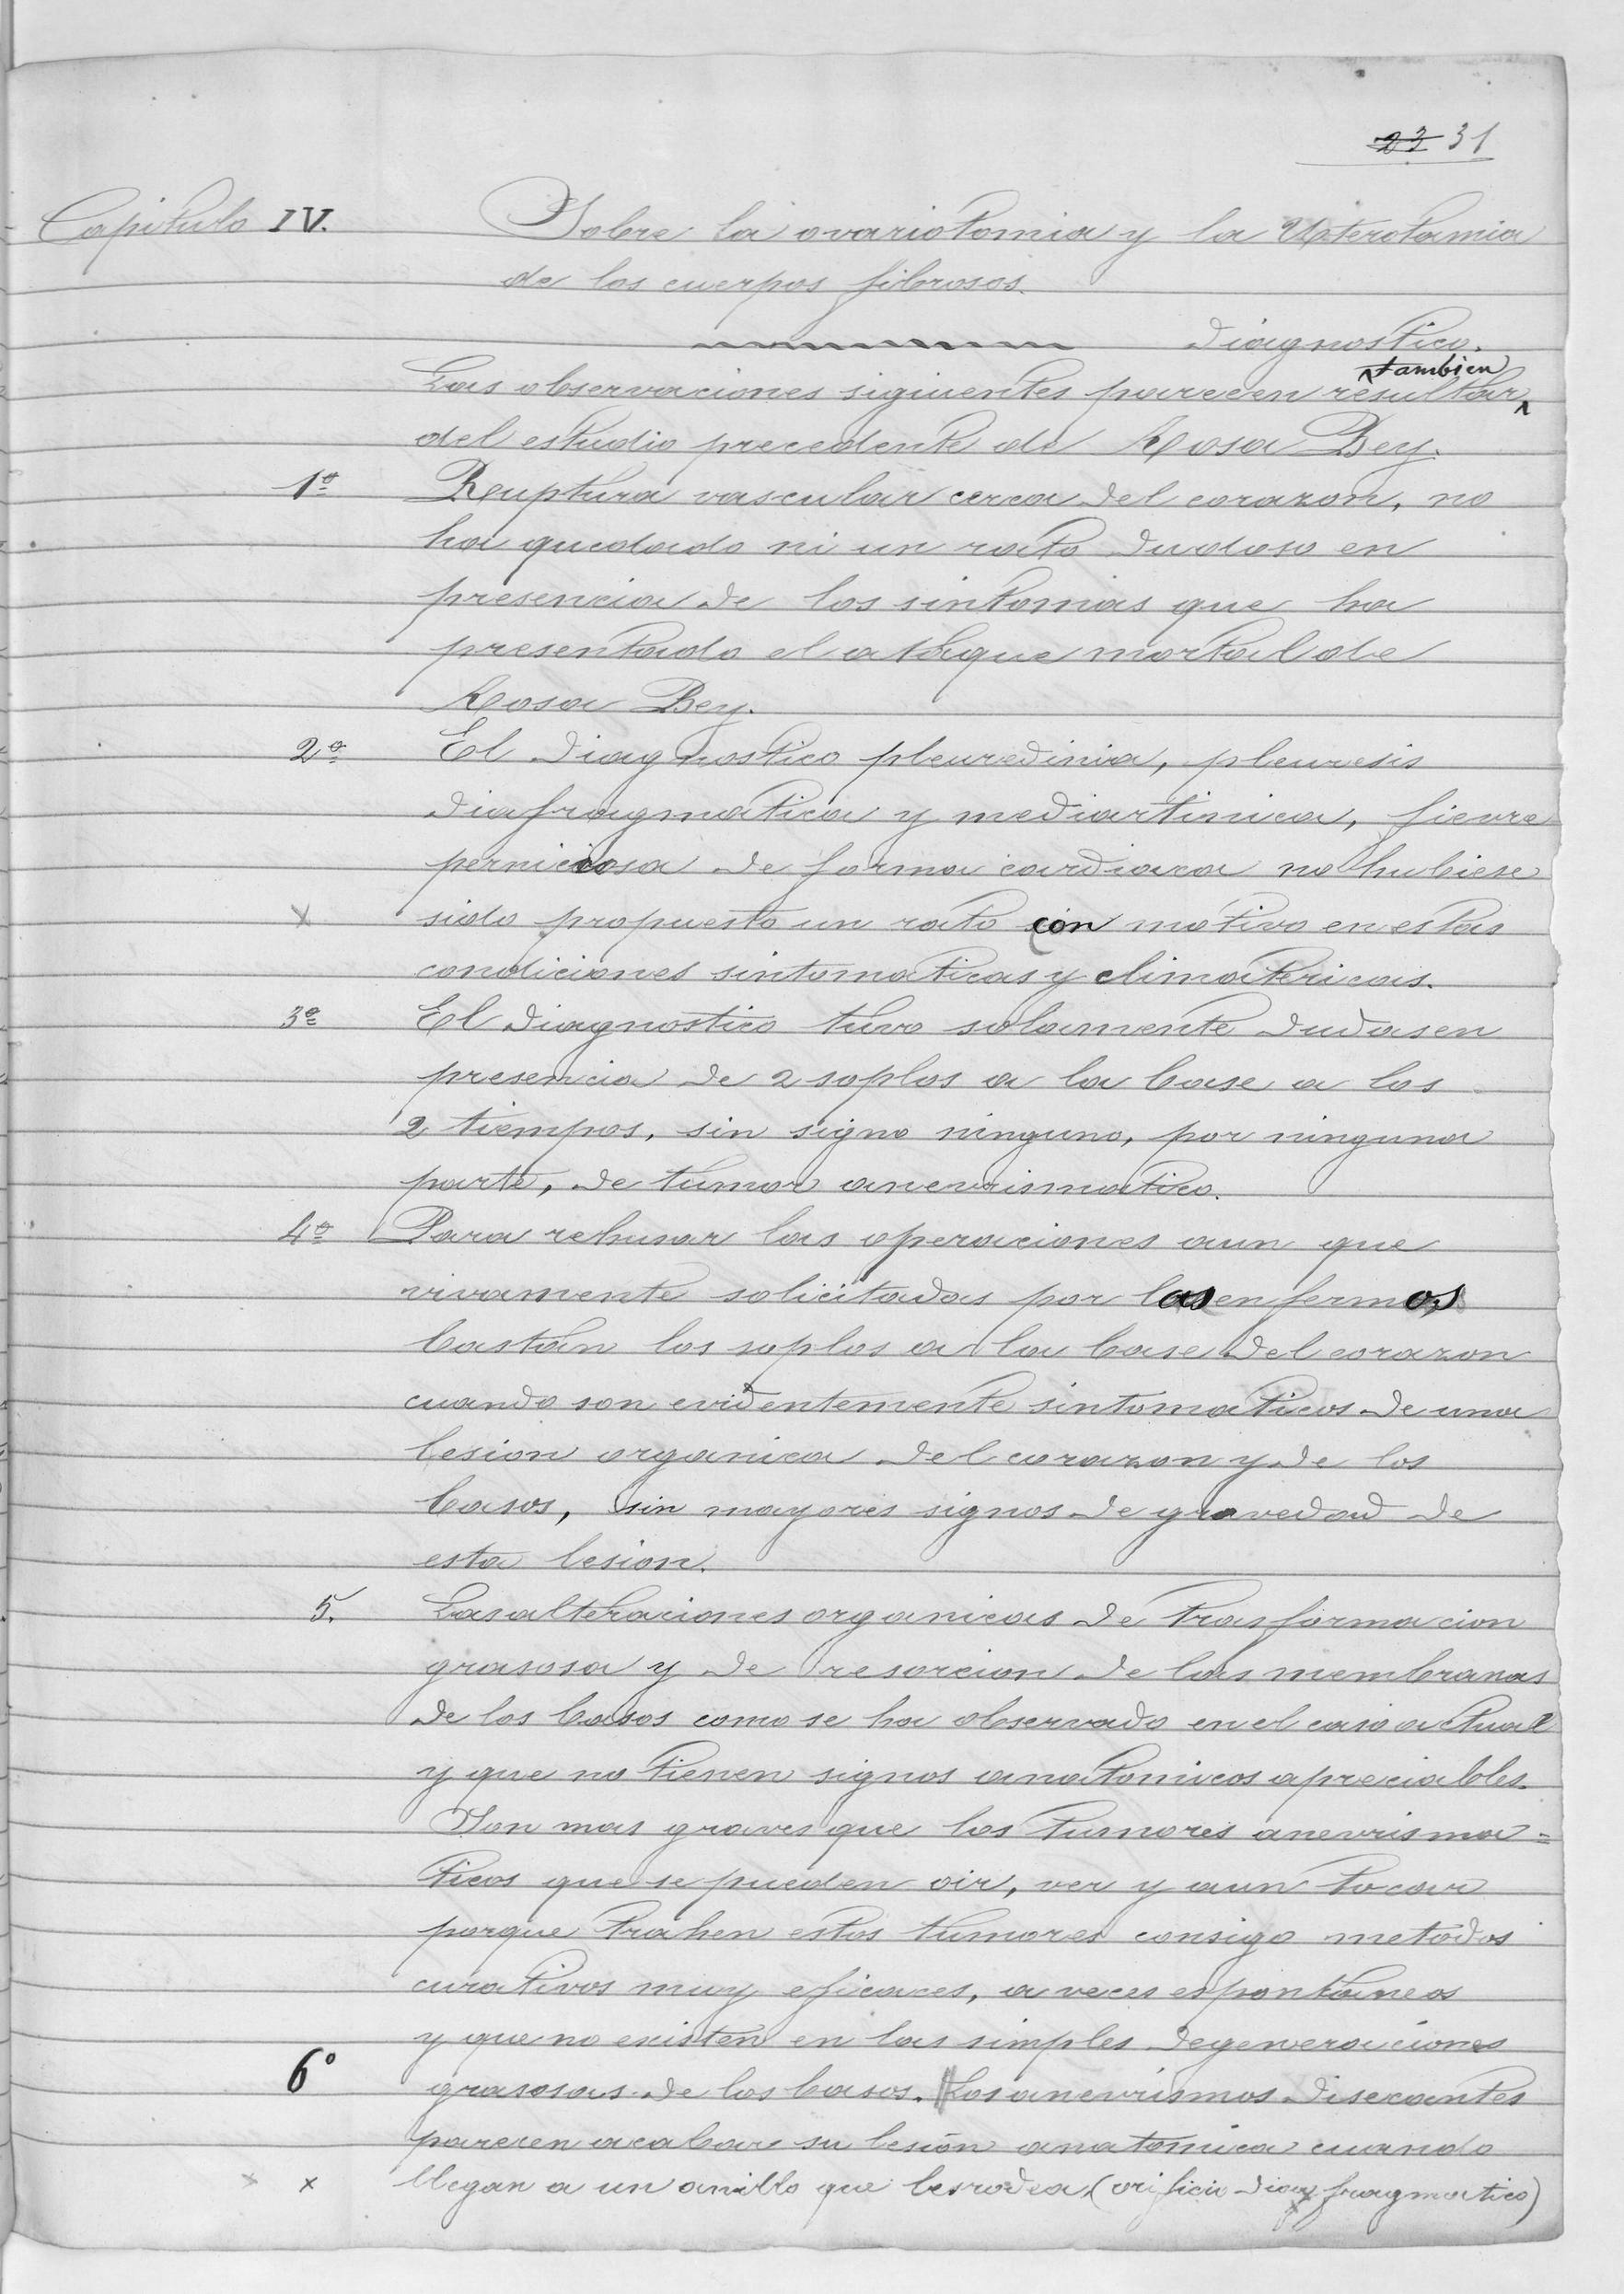 23 31
Capitulo IV. Sobre la ovariotomia y la Uterotamia
de los cuerpos fibrosos.
diagnostico.
tambien
Las observaciones siguientes parecen resultar
del estudio precedente de Rosa Bey.
1º Ruptura vascular cerca del corazon, no
ha quedado ni un rato dudoso en
presencia de los sintomas que ha
presentado el ataque mortal de
Rosa Bey.
2º El diagnostico pleuredinia, pleuresis
diafragmatica y mediartinica, fievre
perniciosa de forma cardiaca no hubiese
x sido propuesto un rato con motivo en estas
condiciones sintomaticas y climatericas.
3º El diagnostico tuvo solamente dudas en
presencia de 2 soplos a la base a los
2 tiempos, sin signo ninguno, por ninguna
parte, de tumor anevrismatico.
4º Para rehusar las operaciones aun que
vivamente solicitadas por las enfermos
bastan los soplos a la base del corazon
cuando son evidentemente sintomaticos de una
lesion organica del corazon y de los
basos, sin mayores signos de gravedad de
esta lesion.
5. Las alteraciones organicas de trasformacion
grasosa y de resorcion de las membranas
de los basos como se ha observado en el caso actual
y que no tienen signos anatomicos apreciables.
Son mas graves que los tumores anevrisma=
ticos que se pueden oir, ver y aun tocar
porque trahen estos tumores consigo metodos
curativos muy eficaces, a veces espontaneos
y que no existen en las simples degeneraciones
6º grasosas de los basos. Los anevrismos disecantes
parecen acabar su lesion anatomica cuando
x x llegan a un anillo que les rodea, (orificio diafragmatico)